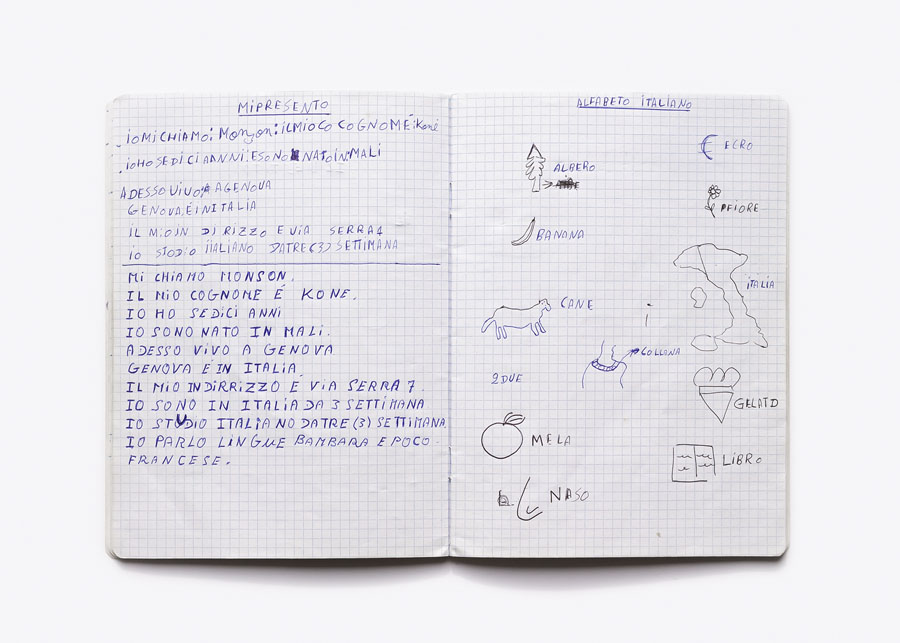 MIPRESENTO
iOMiCHiAMO: Monson: iLMIOCO COGNOMÉ: Koné
iOHO SEDICI ANNI: ESONO NATO iN: MALI
ADESSO ViVO A GENOVA
GENOVA, É iN ITALIA
IL MIO IN DI RIZZO E VIA SERRA 4
io STODIO ITALIANO DATRE (3) SETTIMANA
Mi CHIAMO MONSON.
IL MIO COGNOME É KONE.
IO HO SEDICI ANNI
IO SONO NATO IN MALI.
ADESSO VIVO A GENOVA
GENOVA É IN ITALIA
IL MIO INDIRRIZZO É VIA SERRA 7.
IO SONO IN ITALIA DA 3 SETTIMANA
IO STUDIO ITALIANO DATRE (3) SETTIMANA
IO PARLO LINGUE BAMBARA E POCO
FRANCESE.
ALFABETO ITALIANO
ALBERO
BANANA
CANE
i
COLLANA
2 DUE
MELA
NASO
€ ECRO
FIORE
iTALIA
GELATO
LIBRO